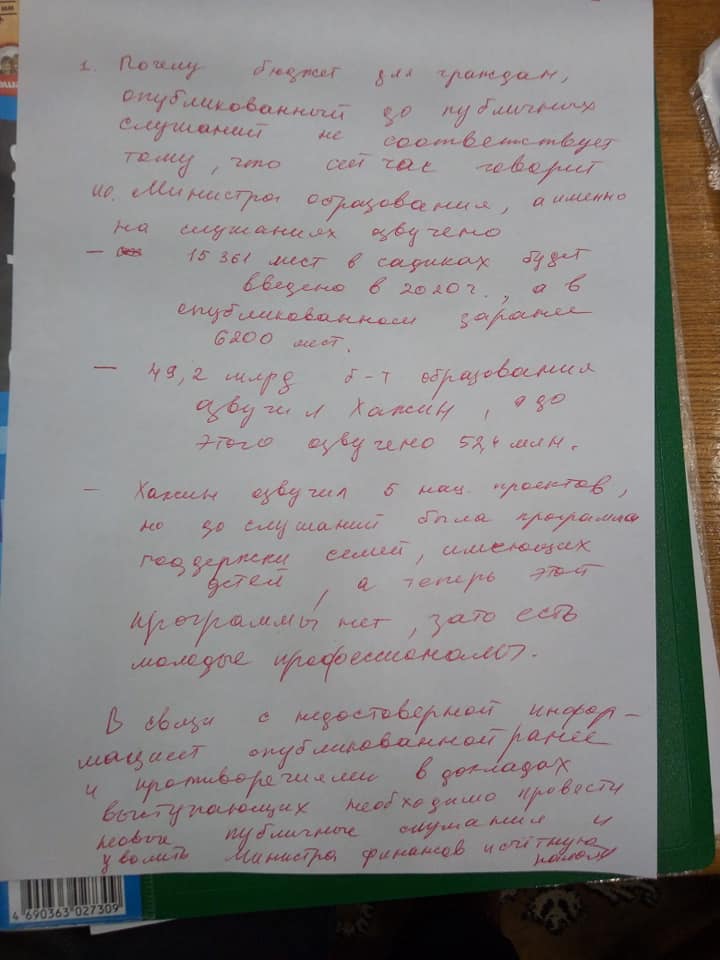 1. Почему бюджет для граждан,
опубликованный до публичных
слушаний не соответствует
тому, что сейчас говорит
ио. Министра образования, а именно
на слушаниях озвучено
— 15361 мест в садиках будет
введено в 2020 г., а в
опубликованном заранее
6200 мест.
— 49,2 млрд б-т образования
озвучил Хажин, а до
этого озвучено 52,4 млн.
— Хажин озвучил 5 нац. проектов,
но до слушаний была программа
поддержки семей, имеющих
детей, а теперь этой
программы нет, зато есть
молодые профессионалы.
В связи с недостоверной инфор-
мацией опубликованной ранее
и противоречиями в докладах
выступающих необходимо провести
новые публичные слушания и
уволить Министра финансов и счётную
палату
4 690363 027309